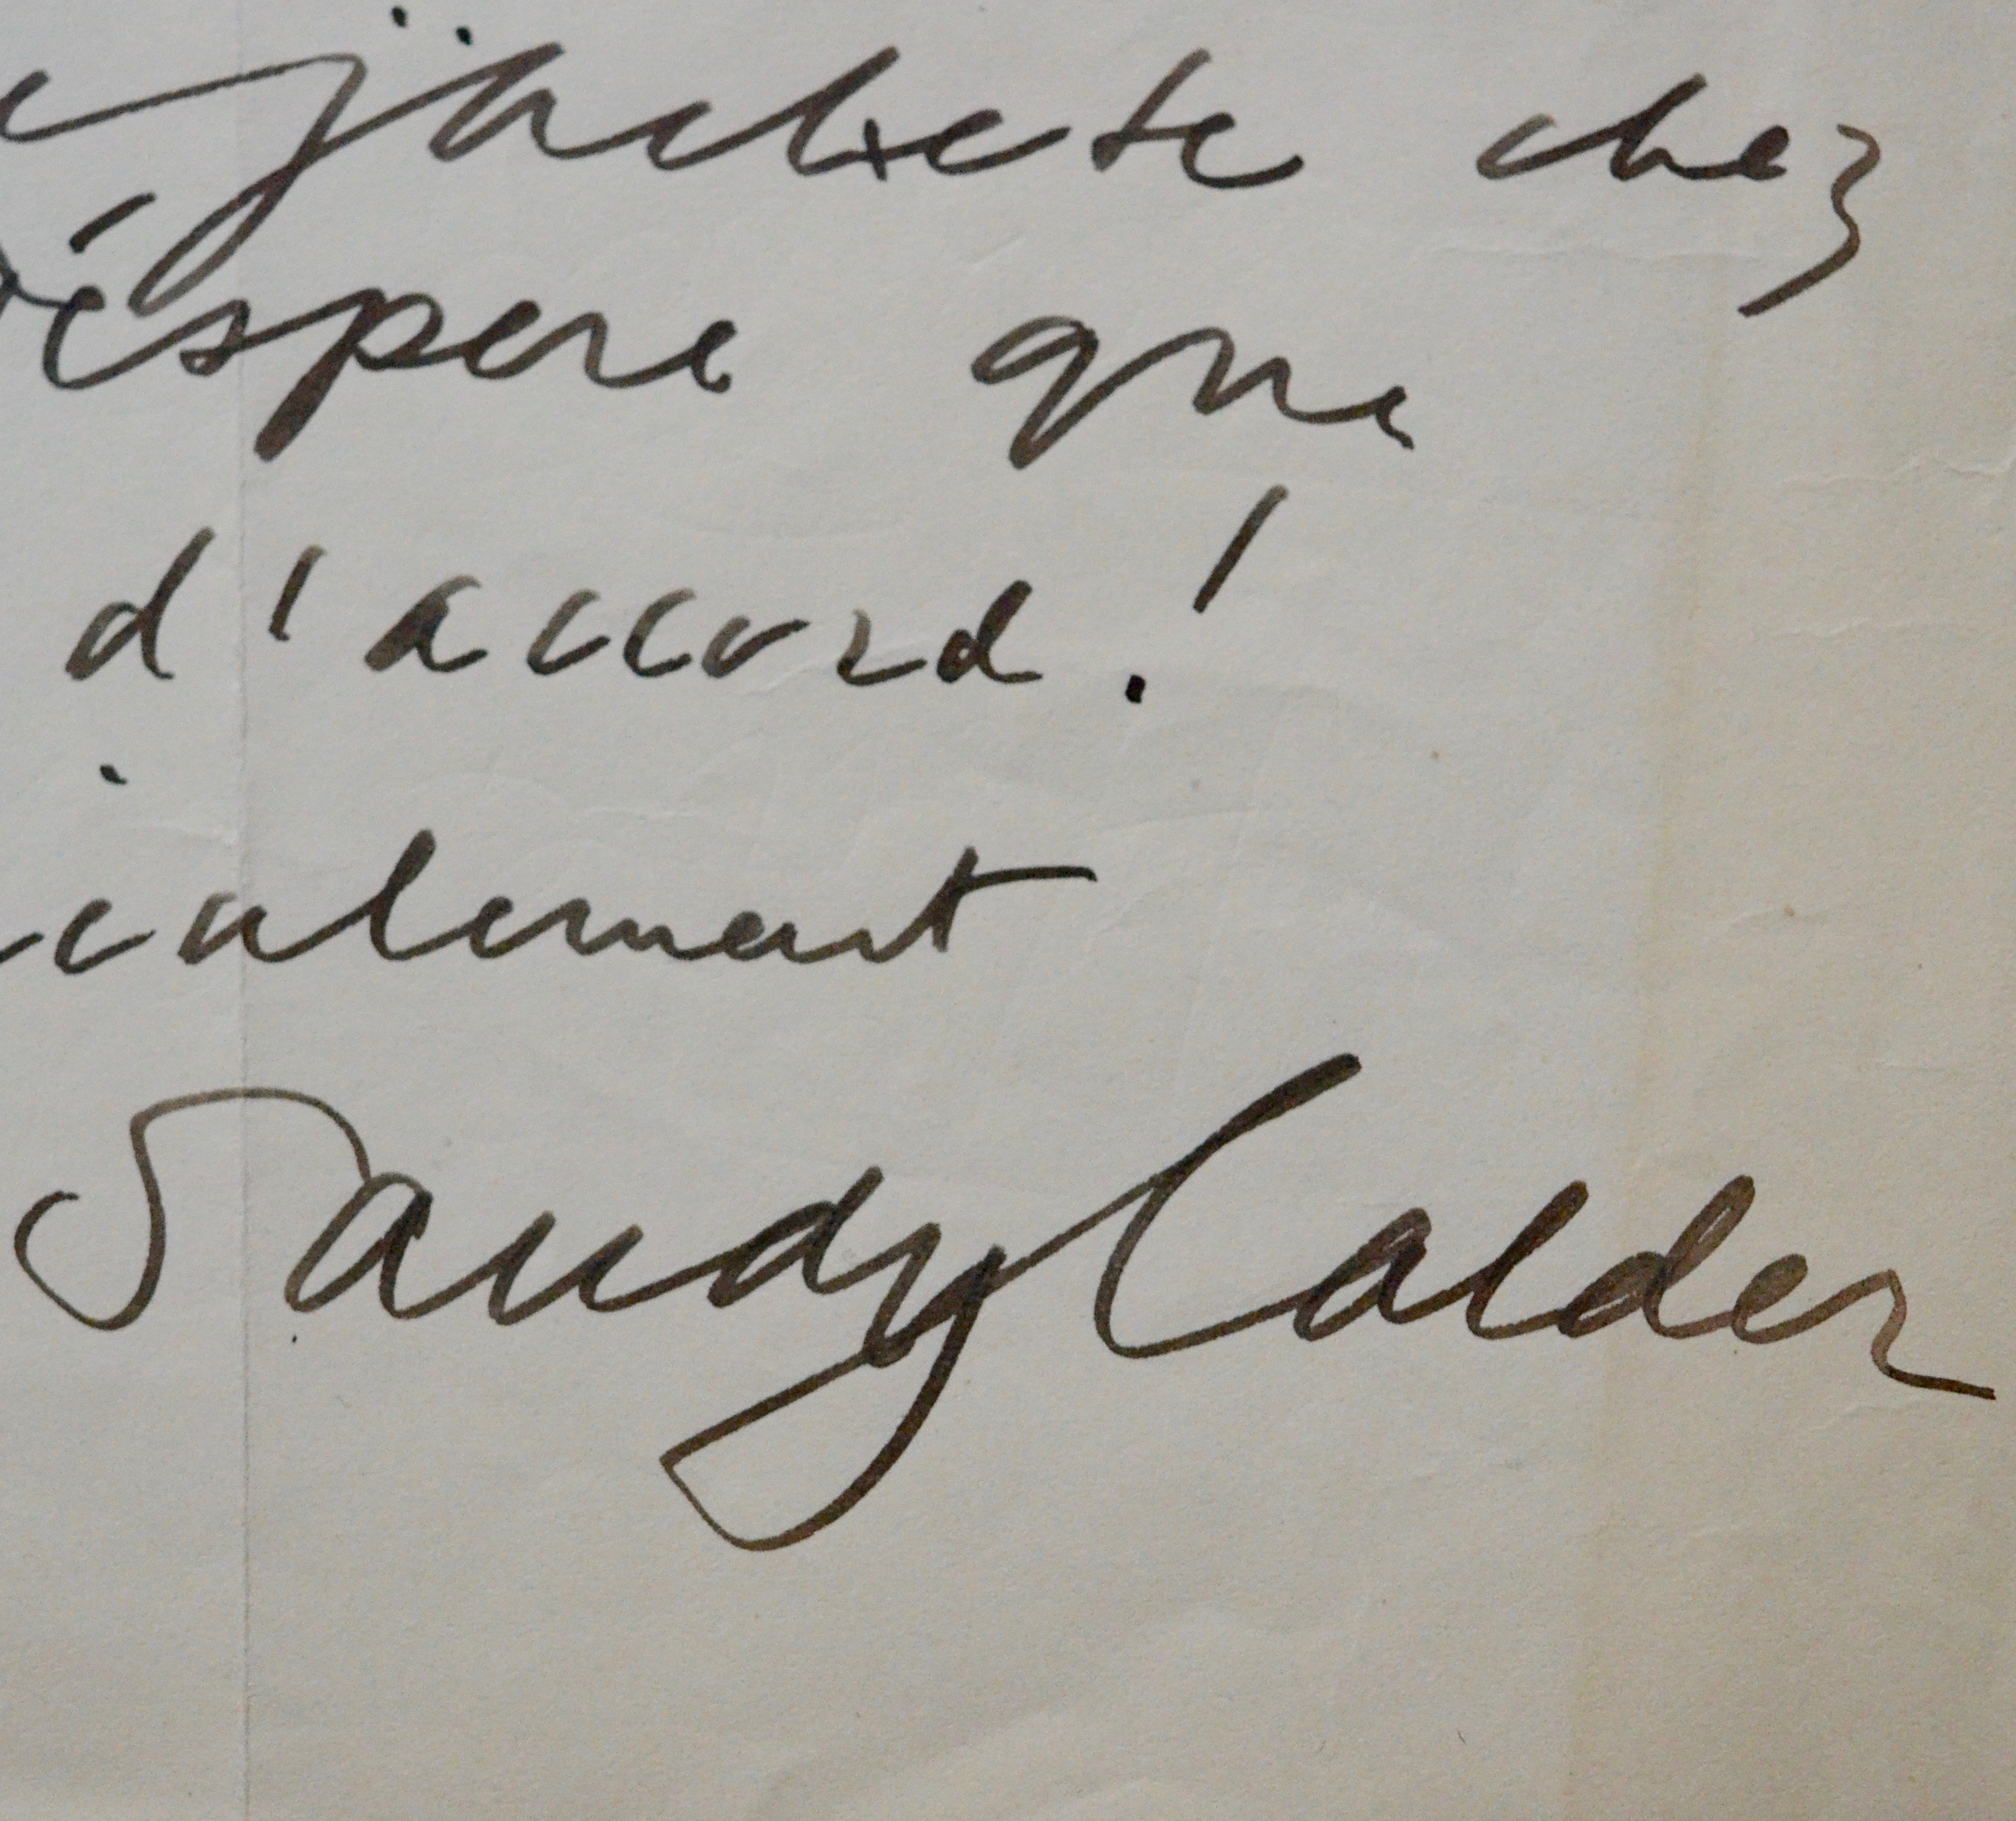 j'achete chez
éspere que
d'accord!
icalement
Sandy Calder